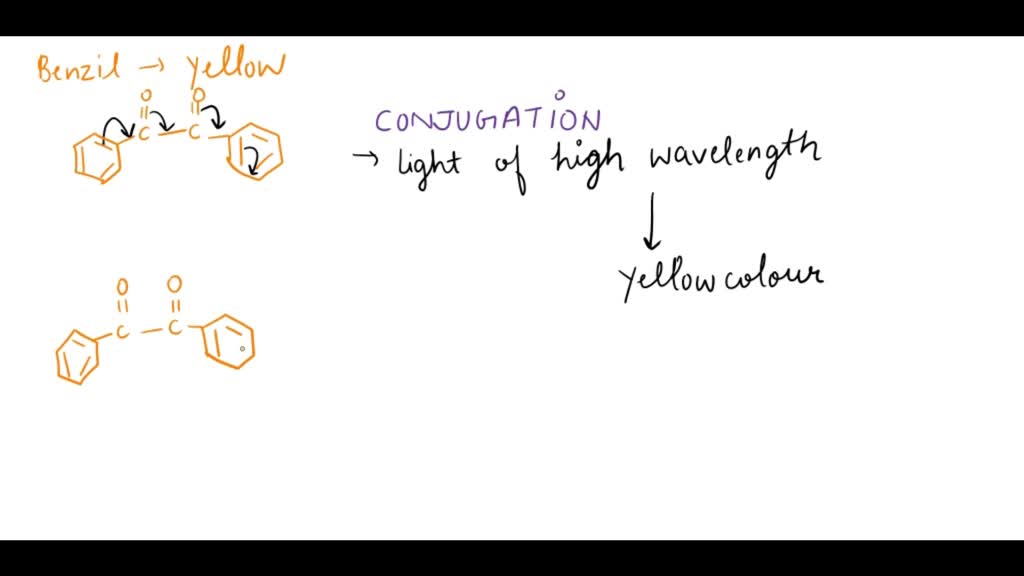 Benzil → yellow
O O
C — C
CONJUGATION
→ light of high wavelength
↓
yellow colour
O O
C — C